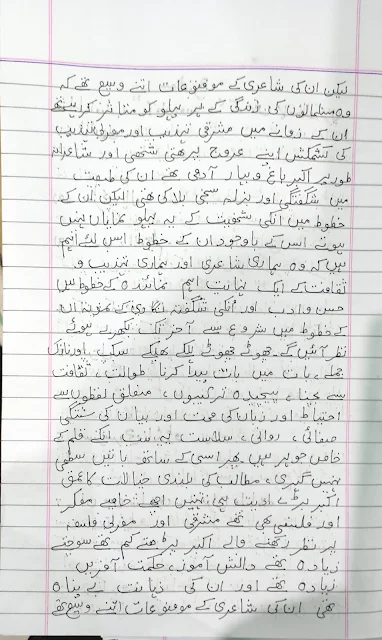 لیکن ان کی شاعری کے موضوعات اتنے وسیع تھے کہ
وہ مسلمانوں کی زندگی کے ہر پہلو کو متاثر کرتے تھے
ان کے زمانے میں مشرقی تہذیب اور مغربی تہذیب
کی کشمکش اپنے عروج پر تھی شخصی اور شاعرانہ
طور پر اکبر باغ و بہار آدمی تھے ان کی طبیعت
میں شگفتگی اور بذلہ سنجی بلا کی تھی لیکن ان کے
خطوط میں انکی شخصیت کے یہ پہلو نمایاں نہیں
ہوتے اس کے باوجود ان کے خطوط اس لئے اہم
ہیں کہ وہ ہماری شاعری اور ہماری تہذیب و
ثقافت کے ایک نہایت اہم نمائندہ کے خطوط ہیں
حسن و ادب اور انکی شگفتہ نگاری کے نمونہ ان
کے خطوط میں شروع سے آخر تک بکھرے ہوئے
نظر آئیں گے۔ چھوٹے چھوٹے ہلکے پھلکے سبک اور نازک
جملے، بات میں بات پیدا کرنا طوالت، ثقافت
سے بچنا، پیچیدہ ترکیبوں، مغلق لفظوں سے
احتیاط اور زبان کی صحت اور بیان کی شستگی
صفائی، روانی، سلاست یہ سب انکے قلم کے
خاص جوہر ہیں۔ پھر اسی کے ساتھ باتیں سطحی
نہیں گہری، مطالب کی بلندی خیالات کا عمق
اکبر بڑے ادیب ہی نہیں اچھے خاصے مفکر
اور فلسفی بھی تھے مشرقی اور مغربی فلسفہ
پر نظر رکھنے والے اکبر پڑھتے کم تھے سوچتے
زیادہ تھے دانش آموز، حکمت آفریں
زیادہ تھے اور ان کی ذہانت بے پناہ
تھی ان کی شاعری کے موضوعات اتنے وسیع تھے